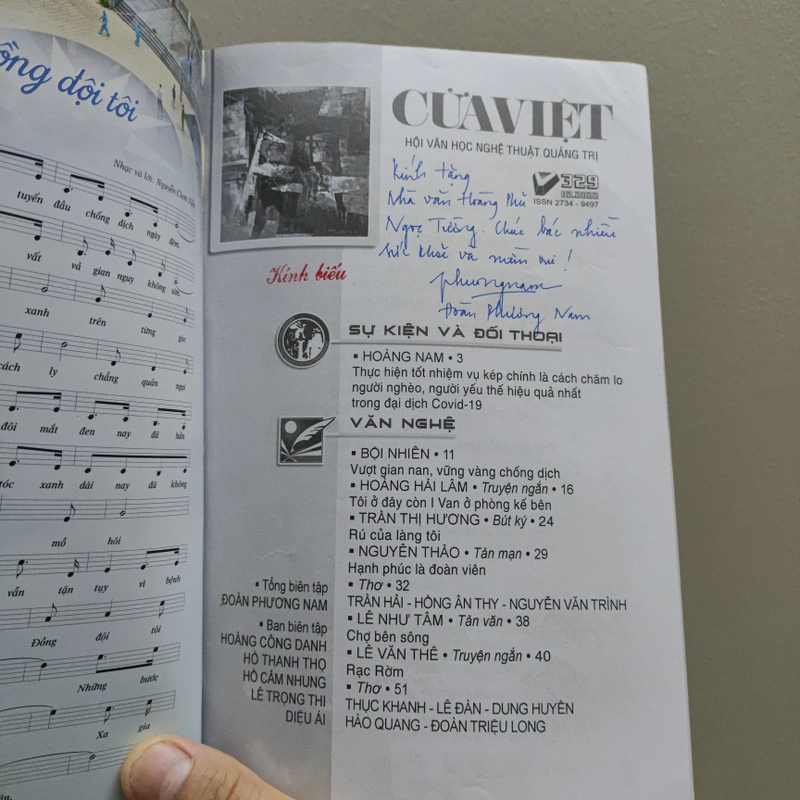 đồng đội tôi
Nhạc và lời: Nguyễn
tuyến đầu chống dịch ngày đêm.
vất vả gian nguy không sờn.
xanh trên từng góc
cách ly chẳng quản ngại
đôi mắt đen nay đã hằn
tóc xanh dài nay đã không
mồ hôi
vẫn tận tụy vì bệnh
Đồng đội tôi
Những bước
Xa gia
CỬA VIỆT
HỘI VĂN HỌC NGHỆ THUẬT QUẢNG TRỊ
329
ISSN 2734 - 9497
Kính tặng
Nhà văn Hoàng Phủ
Ngọc Tường. Chúc bác nhiều
sức khoẻ và niềm vui!
phuongnam
Đoàn Phương Nam
Kính biếu
SỰ KIỆN VÀ ĐỐI THOẠI
▪ HOÀNG NAM • 3
Thực hiện tốt nhiệm vụ kép chính là cách chăm lo
người nghèo, người yếu thế hiệu quả nhất
trong đại dịch Covid-19
VĂN NGHỆ
▪ BỘI NHIÊN • 11
Vượt gian nan, vững vàng chống dịch
▪ HOÀNG HẢI LÂM • Truyện ngắn • 16
Tôi ở đây còn I Van ở phòng kế bên
▪ TRẦN THỊ HƯƠNG • Bút ký • 24
Rú của làng tôi
▪ NGUYÊN THẢO • Tản mạn • 29
Hạnh phúc là đoàn viên
▪ Thơ • 32
TRẦN HẢI - HỒNG ÂN THY - NGUYỄN VĂN TRÌNH
▪ LÊ NHƯ TÂM • Tản văn • 38
Chợ bên sông
▪ LÊ VĂN THÊ • Truyện ngắn • 40
Rạc Rờm
▪ Thơ • 51
THỤC KHANH - LÊ ĐÀN - DUNG HUYÊN
HÀO QUANG - ĐOÀN TRIỆU LONG
▪ Tổng biên tập
ĐOÀN PHƯƠNG NAM
▪ Ban biên tập
HOÀNG CÔNG DANH
HỒ THANH THỌ
HỒ CẨM NHUNG
LÊ TRỌNG THI
DIỆU ÁI